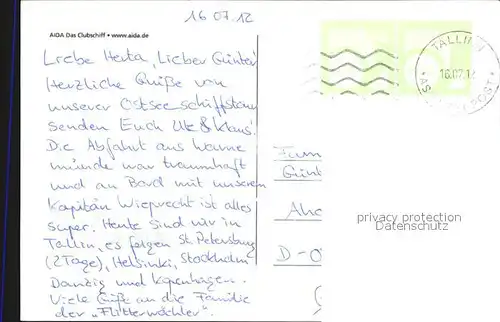 16 07. 12
AIDA Das Clubschiff • www.aida.de
Liebe Herta, Lieber Günter
Herzliche Grüße von
unserer Ostseeschiffstour
senden Euch Ute & Klaus!
Die Abfahrt aus Warne
münde war traumhaft
und an Bord mit unserem
Kapitän Wieprecht ist alles
super. Heute sind wir in
Tallin, es folgen St. Petersburg
(2 Tage), Helsinki, Stockholm
Danzig und Kopenhagen.
Viele Grüße an die Familie
der „Flitterwöchler".
TALLINN
16.07.1
POST
Fam
Günt
Ahr
D-0
privacy protection
Datenschutz